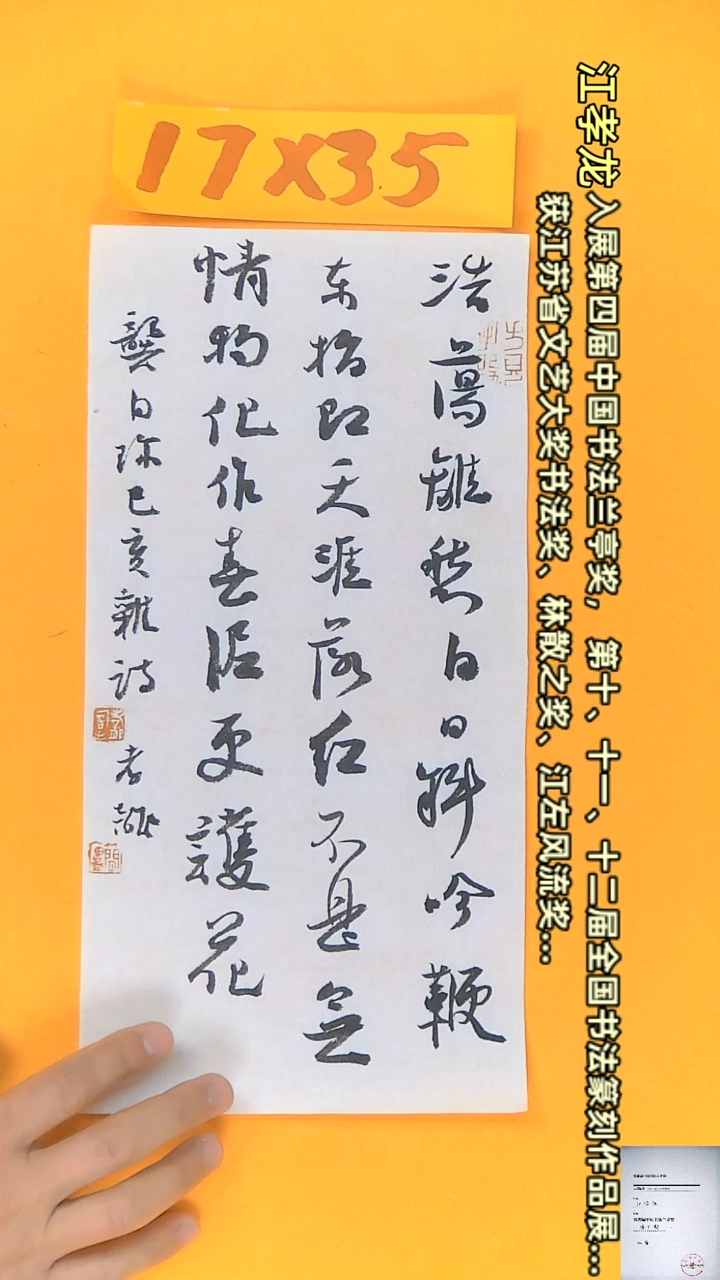 17X35
江孝龙 入展第四届中国书法兰亭奖，第十、十一、十二届全国书法篆刻作品展...
获江苏省文艺大奖书法奖、林散之奖、江左风流奖...
浩蕩離愁白日斜吟鞭
东指即天涯落红不是無
情物化作春泥更護花
龔自珍己亥雜詩 孝龍